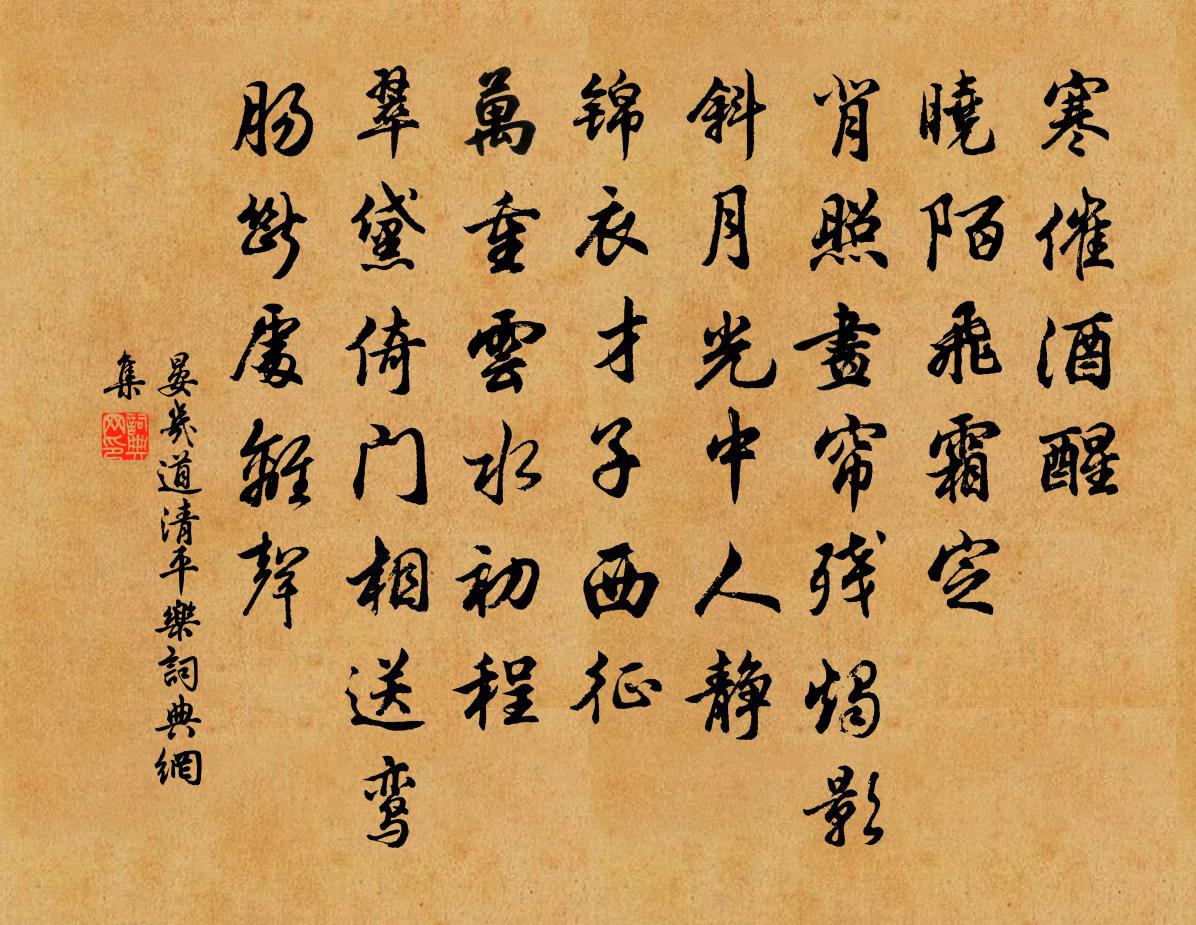 寒催酒醒
曉陌飛霜定
背照畫帘残燭影
斜月光中人静
锦衣才子西征
萬重雲水初程
翠黛倚门相送鸾
肠斷處離聲
晏幾道清平樂詞典網
集
詞典
网印